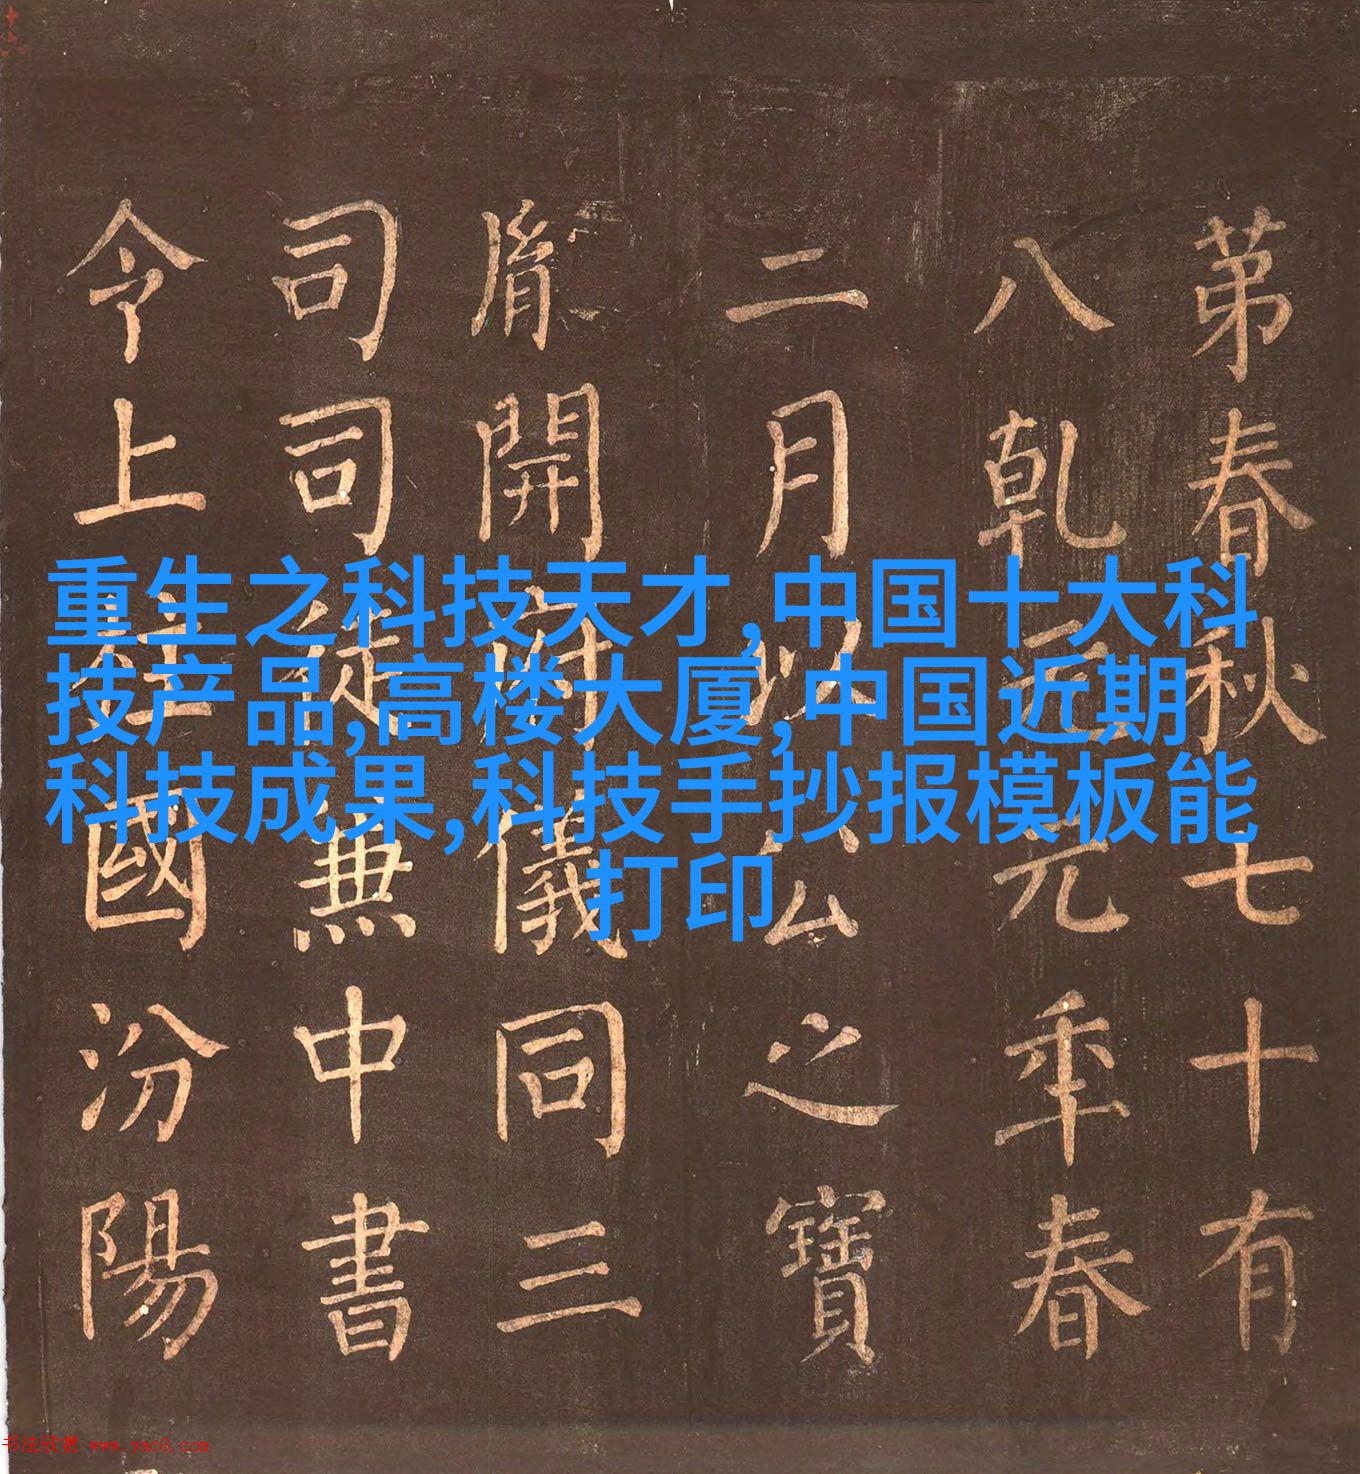 重生之科技天才,中国十大科
技产品,高楼大厦,中国近期
科技成果,科技手抄报模板能
打印
苐春秋七十有
八乾元元年春
二月以公之寶
胤開府儀同三
司司徒兼中書
令上柱國汾陽
书法欣赏 www.yac8.com